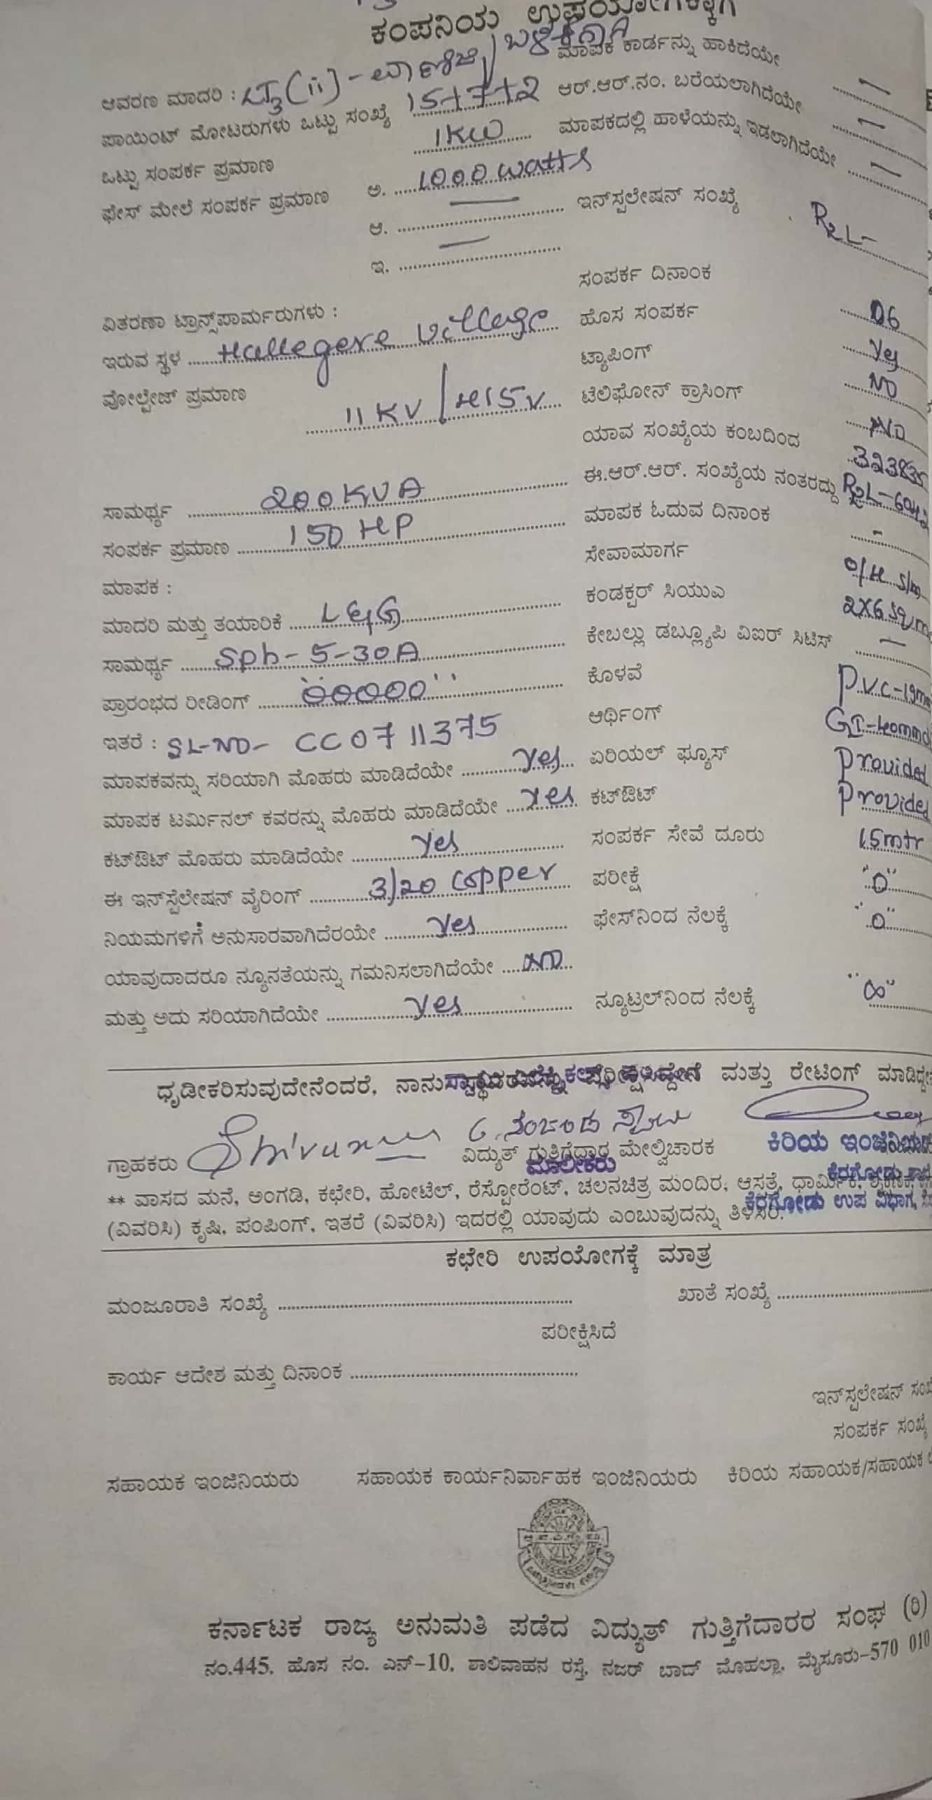 ಕಂಪನಿಯ ಉಪಯೋಗಕ್ಕಾಗಿ
ಆವರಣ ಮಾದರಿ : LT3(ii) - ವಾಣಿಜ್ಯ/ ಮಾಪಕ ಕಾರ್ಡನ್ನು ಹಾಕಿದೆಯೇ —
ಪಾಯಿಂಟ್ ಮೋಟರುಗಳು ಒಟ್ಟು ಸಂಖ್ಯೆ 15+7+2 ಆರ್.ಆರ್.ನಂ. ಬರೆಯಲಾಗಿದೆಯೇ —
ಒಟ್ಟು ಸಂಪರ್ಕ ಪ್ರಮಾಣ 1KW ಮಾಪಕದಲ್ಲಿ ಹಾಳೆಯನ್ನು ಇಡಲಾಗಿದೆಯೇ —
ಫೇಸ್ ಮೇಲೆ ಸಂಪರ್ಕ ಪ್ರಮಾಣ ಅ. 1000 watts ಇನ್‌ಸ್ಟಲೇಷನ್ ಸಂಖ್ಯೆ R2L-
ಆ. —
ಇ. — ಸಂಪರ್ಕ ದಿನಾಂಕ
ವಿತರಣಾ ಟ್ರಾನ್ಸ್‌ಪಾರ್ಮರುಗಳು : ಹೊಸ ಸಂಪರ್ಕ 06
ಇರುವ ಸ್ಥಳ Hallegere Village ಟ್ಯಾಪಿಂಗ್ Yes
ವೋಲ್ಟೇಜ್ ಪ್ರಮಾಣ 11KV/415V ಟೆಲಿಫೋನ್ ಕ್ರಾಸಿಂಗ್ NO
ಯಾವ ಸಂಖ್ಯೆಯ ಕಂಬದಿಂದ NO
ಸಾಮರ್ಥ್ಯ 200KVA ಈ.ಆರ್.ಆರ್. ಸಂಖ್ಯೆಯ ನಂತರದ್ದು
ಸಂಪರ್ಕ ಪ್ರಮಾಣ 150 HP ಮಾಪಕ ಓದುವ ದಿನಾಂಕ -
ಮಾಪಕ : ಸೇವಾಮಾರ್ಗ O/H
ಮಾದರಿ ಮತ್ತು ತಯಾರಿಕೆ L&G ಕಂಡಕ್ಟರ್ ಸಿಯುಎ 2X6 Sq/m
ಸಾಮರ್ಥ್ಯ Sph-5-30A ಕೇಬಲ್ಲು ಡಬ್ಲ್ಯೂಪಿ ವಿಐರ್ ಸಿಟಿಸ್ —
ಪ್ರಾರಂಭದ ರೀಡಿಂಗ್ "00000" ಕೊಳವೆ P.V.C-19mm
ಇತರೆ : SL-NO- CC0711375 ಆರ್ಥಿಂಗ್
ಮಾಪಕವನ್ನು ಸರಿಯಾಗಿ ಮೊಹರು ಮಾಡಿದೆಯೇ Yes ಏರಿಯಲ್ ಫ್ಯೂಸ್ Provided
ಮಾಪಕ ಟರ್ಮಿನಲ್ ಕವರನ್ನು ಮೊಹರು ಮಾಡಿದೆಯೇ Yes ಕಟ್‌ಔಟ್ Provided
ಕಟ್‌ಔಟ್ ಮೊಹರು ಮಾಡಿದೆಯೇ Yes ಸಂಪರ್ಕ ಸೇವೆ ದೂರು 15mtr
ಈ ಇನ್‌ಸ್ಟಲೇಷನ್ ವೈರಿಂಗ್ 3/20 Copper ಪರೀಕ್ಷೆ "0"
ನಿಯಮಗಳಿಗೆ ಅನುಸಾರವಾಗಿದೆರಯೇ Yes ಫೇಸ್‌ನಿಂದ ನೆಲಕ್ಕೆ "0"
ಯಾವುದಾದರೂ ನ್ಯೂನತೆಯನ್ನು ಗಮನಿಸಲಾಗಿದೆಯೇ NO
ಮತ್ತು ಅದು ಸರಿಯಾಗಿದೆಯೇ Yes ನ್ಯೂಟ್ರಲ್‌ನಿಂದ ನೆಲಕ್ಕೆ "∞"
ಧೃಡೀಕರಿಸುವುದೇನೆಂದರೆ, ನಾನು ಮತ್ತು ರೇಟಿಂಗ್
ಗ್ರಾಹಕರು ವಿದ್ಯುತ್ ಗುತ್ತಿಗೆದಾರ ಮೇಲ್ವಿಚಾರಕ ಕಿರಿಯ ಇಂಜಿನಿಯರ್
ಮಾಲೀಕರು
** ವಾಸದ ಮನೆ, ಅಂಗಡಿ, ಕಛೇರಿ, ಹೋಟೆಲ್, ರೆಸ್ಟೋರೆಂಟ್, ಚಲನಚಿತ್ರ ಮಂದಿರ, ಆಸ್ಪತ್ರೆ,
(ವಿವರಿಸಿ) ಕೃಷಿ, ಪಂಪಿಂಗ್, ಇತರೆ (ವಿವರಿಸಿ) ಇದರಲ್ಲಿ ಯಾವುದು ಎಂಬುವುದನ್ನು ತಿಳಿಸಿರಿ. ಕೆರಗೋಡು ಉಪ ವಿಭಾಗ,
ಕಛೇರಿ ಉಪಯೋಗಕ್ಕೆ ಮಾತ್ರ
ಮಂಜೂರಾತಿ ಸಂಖ್ಯೆ ಖಾತೆ ಸಂಖ್ಯೆ
ಪರೀಕ್ಷಿಸಿದೆ
ಕಾರ್ಯ ಆದೇಶ ಮತ್ತು ದಿನಾಂಕ
ಇನ್‌ಸ್ಟಲೇಷನ್
ಸಂಪರ್ಕ ಸಂಖ್ಯೆ
ಸಹಾಯಕ ಇಂಜಿನಿಯರು ಸಹಾಯಕ ಕಾರ್ಯನಿರ್ವಾಹಕ ಇಂಜಿನಿಯರು ಕಿರಿಯ ಸಹಾಯಕ/ಸಹಾಯಕ
ಕರ್ನಾಟಕ ರಾಜ್ಯ ಅನುಮತಿ ಪಡೆದ ವಿದ್ಯುತ್ ಗುತ್ತಿಗೆದಾರರ ಸಂಘ (ರಿ)
ನಂ.445, ಹೊಸ ನಂ. ಎನ್-10, ಶಾಲಿವಾಹನ ರಸ್ತೆ, ನಜರ್ ಬಾದ್ ಮೊಹಲ್ಲಾ, ಮೈಸೂರು-570 010